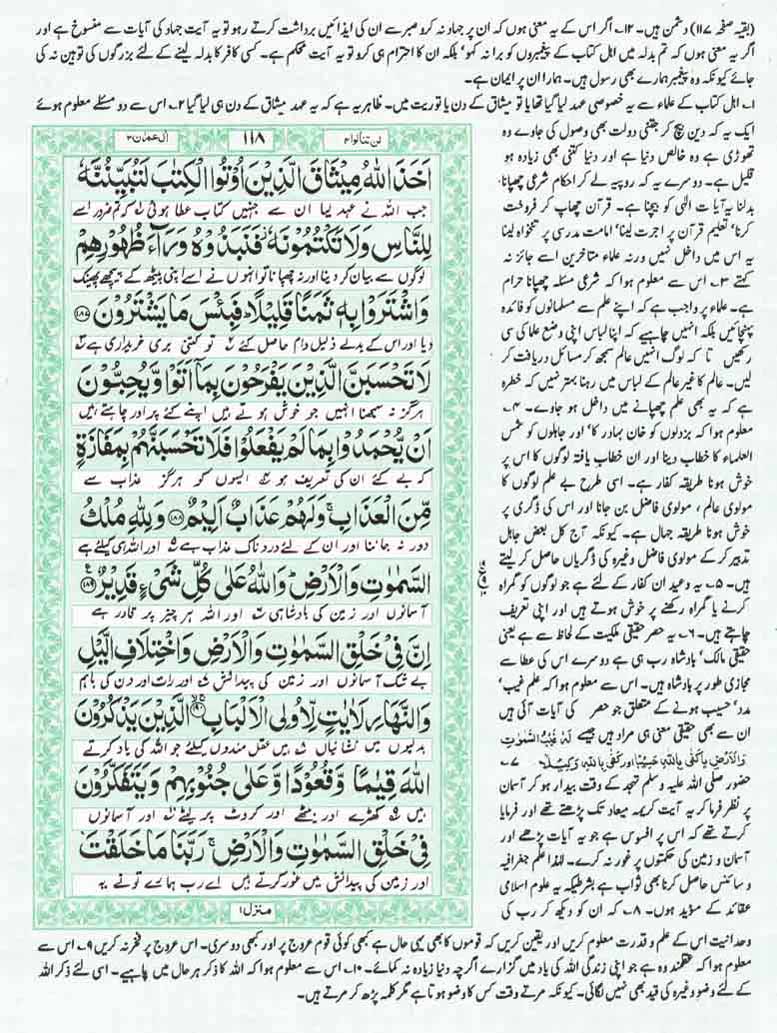 (بقیہ صفحہ ۱۱۷) دشمن ہیں۔ ۱۲؎ اگر اس کے یہ معنی ہوں کہ ان پر جہاد نہ کرو صبر سے ان کی ایذائیں برداشت کرتے رہو تو یہ آیت جہاد کی آیات سے منسوخ ہے اور
اگر یہ معنی ہوں کہ تم بدلہ میں اہل کتاب کے پیغمبروں کو برا نہ کہو' بلکہ ان کا احترام ہی کرو تو یہ آیت محکم ہے۔ کسی کافر کا بدلہ لینے کے لئے بزرگوں کی توہین نہ کی
جائے کیونکہ وہ پیغمبر ہمارے بھی رسول ہیں۔ ہمارا ان پر ایمان ہے۔
۱؎ اہل کتاب کے علماء سے یہ خصوصی عہد لیا گیا تھا یا تو میثاق کے دن یا توریت میں۔ ظاہر یہ ہے کہ یہ عہد میثاق کے دن ہی لیا گیا ۲؎ اس سے دو مسئلے معلوم ہوئے
ایک یہ کہ دین بیچ کر جتنی دولت بھی وصول کی جاوے وہ
تھوڑی ہے وہ خالص دنیا ہے اور دنیا کتنی بھی زیادہ ہو
قلیل ہے۔ دوسرے یہ کہ روپیہ لے کر احکام شرعی چھپانا
بدلنا یہ آیات الٰہی کو بیچنا ہے۔ قرآن چھاپ کر فروخت
کرنا' تعلیم قرآن پر اجرت لینا' امامت مدرسی پر تنخواہ لینا
یہ اس میں داخل نہیں ورنہ علماء متاخرین اسے جائز نہ
کہتے ۳؎ اس سے معلوم ہوا کہ شرعی مسئلہ چھپانا حرام
ہے۔ علماء پر واجب ہے کہ اپنے علم سے مسلمانوں کو فائدہ
پہنچائیں بلکہ انہیں چاہیے کہ اپنا لباس اپنی وضع علما کی سی
رکھیں تا کہ لوگ انہیں عالم سمجھ کر مسائل دریافت کر
لیں۔ عالم کا غیر عالم کے لباس میں رہنا بہتر نہیں کہ خطرہ
ہے کہ یہ بھی علم چھپانے میں داخل ہو جاوے۔ ۴؎
معلوم ہوا کہ بزدلوں کو خان بہادر کا' اور جاہلوں کو شمس
العلماء کا خطاب دینا اور ان خطاب یافتہ لوگوں کا اس پر
خوش ہونا طریقہ کفار ہے۔ اسی طرح بے علم لوگوں کا
مولوی عالم، مولوی فاضل بن جانا اور اس کی ڈگری پر
خوش ہونا طریقہ جہال ہے۔ کیونکہ آج کل بعض جاہل
تدبیر کر کے مولوی فاضل وغیرہ کی ڈگریاں حاصل کر لیتے
ہیں۔ ۵؎ یہ وعید ان کفار کے لئے ہے جو لوگوں کو گمراہ
کرنے یا گمراہ رکھنے پر خوش ہوتے ہیں اور اپنی تعریف
چاہتے ہیں۔ ۶؎ یہ حصر حقیقی ملکیت کے لحاظ سے ہے یعنی
حقیقی مالک' بادشاہ رب ہی ہے دوسرے اس کی عطا سے
مجازی طور پر بادشاہ ہیں۔ اس سے معلوم ہوا کہ علم غیب'
مدد' حسیب ہونے کے متعلق جو حصر کی آیات آئی ہیں
ان سے بھی حقیقی معنی ہی مراد ہیں جیسے لَهٗ غَيْبُ السَّمٰوٰتِ
وَالْاَرْضِ یا كَفٰى بِاللّٰهِ حَسِيْبًا اور كَفٰى بِاللّٰهِ وَكِيْلًا ۷؎
حضور صلی اللہ علیہ وسلم تہجد کے وقت بیدار ہو کر آسمان
پر نظر فرما کر یہ آیت کریمہ میعاد تک پڑھتے تھے اور فرمایا
کرتے تھے کہ اس پر افسوس ہے جو یہ آیات پڑھے اور
آسمان و زمین کی حکمتوں پر غور نہ کرے۔ لہٰذا علم جغرافیہ
و سائنس حاصل کرنا بھی ثواب ہے بشرطیکہ یہ علوم اسلامی
عقائد کے مؤید ہوں۔ ۸؎ کہ ان کو دیکھ کر رب کی
وحدانیت اس کے علم و قدرت معلوم کریں اور یقین کریں کہ قوموں کا بھی یہی حال ہے کبھی کوئی قوم عروج پر اور کبھی دوسری۔ اس عروج پر فخر نہ کریں ۹؎ اس سے
معلوم ہوا کہ عقلمند وہ ہے جو اپنی زندگی اللہ کی یاد میں گزارے اگرچہ دنیا زیادہ نہ کمائے۔ ۱۰؎ اس سے معلوم ہوا کہ اللہ کا ذکر ہر حال میں چاہیے۔ اسی لئے ذکر اللہ
کے لئے وضو وغیرہ کی قید بھی نہیں لگائی۔ کیونکہ مرتے وقت کس کا وضو ہوتا ہے مگر کلمہ پڑھ کر مرتے ہیں۔
لن تنالوا ۴ ۱۱۸ اٰل عمران ۳
اَخَذَ اللّٰهُ مِيْثَاقَ الَّذِيْنَ اُوْتُوا الْكِتٰبَ لَتُبَيِّنُنَّهٗ
جب اللہ نے عہد لیا ان سے جنہیں کتاب عطا ہوئی کہ تم ضرور اسے
لِلنَّاسِ وَلَا تَكْتُمُوْنَهٗ فَنَبَذُوْهُ وَرَآءَ ظُهُوْرِهِمْ
لوگوں سے بیان کر دینا اور نہ چھپانا تو انہوں نے اسے اپنی پیٹھ کے پیچھے پھینک
وَاشْتَرَوْا بِهٖ ثَمَنًا قَلِيْلًا فَبِئْسَ مَا يَشْتَرُوْنَ ۱۸۷
دیا اور اس کے بدلے ذلیل دام حاصل کئے تو کتنی بری خریداری ہے
لَا تَحْسَبَنَّ الَّذِيْنَ يَفْرَحُوْنَ بِمَا اَتَوْا وَّيُحِبُّوْنَ
ہرگز نہ سمجھنا انہیں جو خوش ہوتے ہیں اپنے کئے پر اور چاہتے ہیں
اَنْ يُّحْمَدُوْا بِمَا لَمْ يَفْعَلُوْا فَلَا تَحْسَبَنَّهُمْ بِمَفَازَةٍ
کہ بے کئے ان کی تعریف ہو ایسوں کو ہرگز عذاب سے
مِّنَ الْعَذَابِ وَلَهُمْ عَذَابٌ اَلِيْمٌ ۱۸۸ وَلِلّٰهِ مُلْكُ
دور نہ جاننا اور ان کے لئے دردناک عذاب ہے اور اللہ ہی کیلئے ہے
السَّمٰوٰتِ وَالْاَرْضِ وَاللّٰهُ عَلٰى كُلِّ شَيْءٍ قَدِيْرٌ ۱۸۹
آسمانوں اور زمین کی بادشاہی اور اللہ ہر چیز پر قادر ہے
اِنَّ فِيْ خَلْقِ السَّمٰوٰتِ وَالْاَرْضِ وَاخْتِلَافِ الَّيْلِ
بے شک آسمانوں اور زمین کی پیدائش اور رات اور دن کی باہم
وَالنَّهَارِ لَاٰيٰتٍ لِّاُولِي الْاَلْبَابِ ۱۹۰ الَّذِيْنَ يَذْكُرُوْنَ
بدلیوں میں نشانیاں ہیں عقل مندوں کیلئے جو اللہ کی یاد کرتے
اللّٰهَ قِيٰمًا وَّقُعُوْدًا وَّعَلٰى جُنُوْبِهِمْ وَيَتَفَكَّرُوْنَ
ہیں کھڑے اور بیٹھے اور کروٹ پر لیٹے اور آسمانوں
فِيْ خَلْقِ السَّمٰوٰتِ وَالْاَرْضِ رَبَّنَا مَا خَلَقْتَ
اور زمین کی پیدائش میں غور کرتے ہیں اے رب ہمارے تو نے یہ
منزل ۱